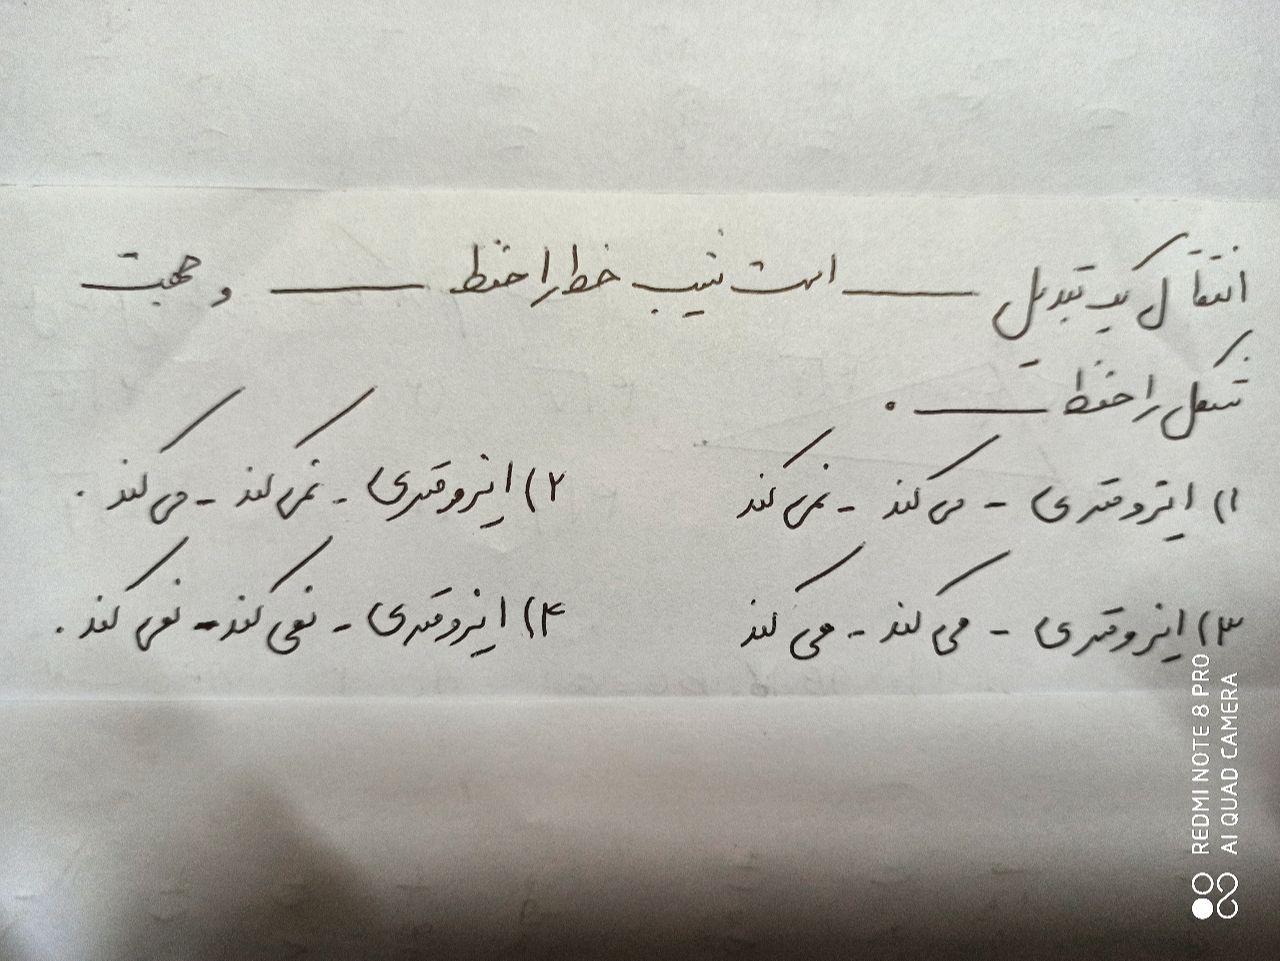 انتقال یک تبدیل ــــــ است شیب خط را حفظ ــــــ و جهت
شکل را حفظ ــــــ .
۱) ایزومتری - می کند - نمی کند
۲) ایزومتری - نمی کند - می کند .
۳) ایزومتری - می کند - می کند
۴) ایزومتری - نمی کند - نمی کند .
REDMI NOTE 8 PRO
AI QUAD CAMERA